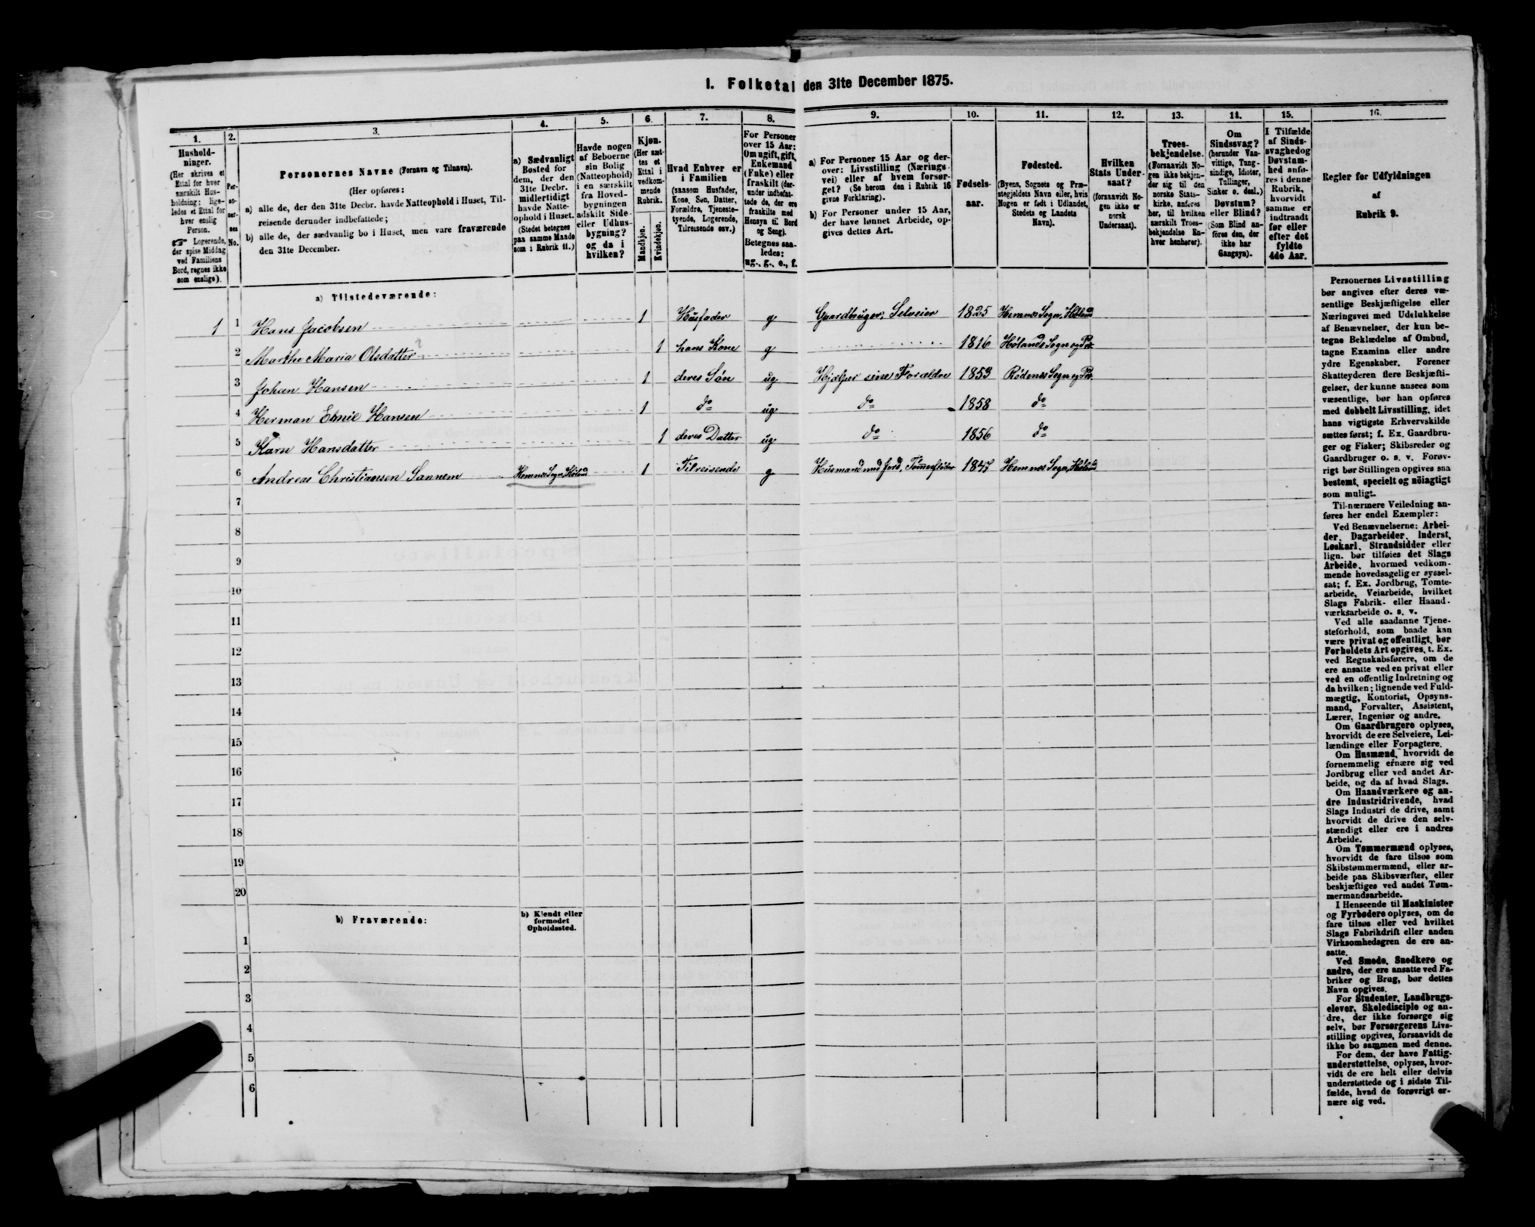 I. Folketal den 31te December 1875.
1.
Hushold-
ninger.
(Her skrives et
Ettal for hver
særskilt Hus-
holdning; lige-
ledes et Ettal for
hver enslig
Person.
☞ Logerende,
der spise Middag
ved Familiens
Bord, regnes ikke
som enslige).
2.
Per-
so-
ner-
nes
No.
3.
Personernes Navne (Fornavn og Tilnavn).
(Her opføres:
a) alle de, der den 31te Decbr. havde Natteophold i Huset, Til-
reisende derunder indbefattede;
b) alle de, der sædvanlig bo i Huset, men vare fraværende
den 31te December.
4.
a) Sædvanligt
Bosted for
dem, der den
31te Decbr.
midlertidigt
havde Natte-
ophold i Huset.
(Stedet betegnes
paa samme Maade
som i Rubrik 11.)
5.
Havde nogen
af Beboerne
sin Bolig
(Natteophold)
i en særskilt
fra Hoved-
bygningen
adskilt Side-
eller Udhus-
bygning?
og da i
hvilken?
6.
Kjøn.
(Her sæt-
tes et
Ettal i
vedkom-
mende
Rubrik.
Mandkjøn.
Kvindekjøn.
7.
Hvad Enhver er
i Familien
(saasom Husfader,
Kone, Søn, Datter,
Forældre, Tjeneste-
tyende, Logerende,
Tilreisende osv.)
8.
For Personer
over 15 Aar:
Om ugift, gift,
Enkemand
(Enke) eller
fraskilt (der-
under indbefat-
tede de, der ere
fraskilte med
Hensyn til Bord
og Seng).
Betegnes saa-
ledes:
ug., g., e., f.
9.
a) For Personer 15 Aar og der-
over: Livsstilling (Nærings-
vei) eller af hvem forsør-
get? (Se herom den i Rubrik 16
givne Forklaring).
b) For Personer under 15 Aar,
der have lønnet Arbeide, op-
gives dettes Art.
10.
Fødsels-
aar.
11.
Fødested.
(Byens, Sognets og Præ-
stegjeldets Navn eller, hvis
Nogen er født i Udlandet,
Stedets og Landets
Navn).
12.
Hvilken
Stats Under-
saat?
(forsaavidt No-
gen ikke er
norsk
Undersaat).
13.
Troes-
bekjendelse.
(Forsaavidt No-
gen ikke bekjen-
der sig til den
norske Stats-
kirke, anføres
her, til hvilken
særskilt Troes-
bekjendelse En-
hver henhører).
14.
Om
Sindssvag?
(herunder Van-
vittige, Tung-
sindige, Idioter,
Tullinger,
Sinker o. desl.)
Døvstum?
eller Blind?
(Som Blind an-
føres den, der
ikke har
Gangsyn).
15.
I Tilfælde
af Sinds-
svaghed og
Døvstum-
hed anfø-
res i denne
Rubrik,
hvorvidt
samme er
indtraadt
før eller
efter det
fyldte
4de Aar.
16.
Regler for Udfyldningen
af
Rubrik 9.
a) Tilstedeværende:
1 1 Hans Jacobsen 1 Husfader g Gaardbruger, Selveier 1825 Hemnes Sogn, Høland
2 Marthe Maria Olsdatter 1 hans Kone g 1816 Hølands Sogn og Pr.
3 Johan Hansen 1 deres Søn ug Hjælper sine Forældre 1853 Rødenes Sogn og Pr.
4 Herman Emil Hansen 1 do ug do 1858 do
5 Karn Hansdatter 1 deres Datter ug do 1856 do
6 Andreas Christiansen Sannem Hemnes Sogn, Høland 1 Tilreisende g Husmand med Jord, 1847 Hemnes Sogn, Høland
7
8
9
10
11
12
13
14
15
16
17
18
19
20
b) Fraværende:
b) Kjendt eller
formodet
Opholdssted.
1
2
3
4
5
6
Personernes Livsstilling
bør angives efter deres væ-
sentlige Beskjæftigelse eller
Næringsvei med Udelukkelse
af Benævnelser, der kun be-
tegne Beklædelse af Ombud,
tagne Examina eller andre
ydre Egenskaber. Forener
Skatteyderen flere Beskjæfti-
gelser, der kunne ansees som
væsentlige, bør han opføres
med dobbelt Livsstilling, idet
hans vigtigste Erhvervskilde
sættes først; f. Ex. Gaardbru-
ger og Fisker; Skibsreder og
Gaardbruger o. s. v. Forøv-
rigt bør Stillingen opgives saa
bestemt, specielt og nøiagtigt
som muligt.
Til nærmere Veiledning an-
føres her endel Exempler:
Ved Benævnelserne: Arbei-
der, Dagarbeider, Inderst,
Løskarl, Strandsidder eller
lign. bør tilføies det Slags
Arbeide, hvormed vedkom-
mende hovedsagelig er syssel-
sat; f. Ex. Jordbrug, Tomte-
arbeide, Veiarbeide, hvilket
Slags Fabrik- eller Haand-
værksarbeide o. s. v.
Ved alle saadanne Tjene-
steforhold, som baade kan
være privat og offentligt, bør
Forholdets Art opgives, t. Ex.
ved Regnskabsførere, om de
ere ansatte ved en privat eller
ved en offentlig Indretning og
da hvilken; lignende ved Fuld-
mægtig, Kontorist, Opsyns-
mand, Forvalter, Assistent,
Lærer, Ingeniør og andre.
Om Gaardbrugere oplyses,
hvorvidt de ere Selveiere, Lei-
lændinge eller Forpagtere.
Om Husmænd, hvorvidt de
fornemmelig ernære sig ved
Jordbrug eller ved andet Ar-
beide, og da af hvad Slags.
Om Haandværkere og an-
dre Industridrivende, hvad
Slags Industri de drive, samt
hvorvidt de drive den selv-
stændigt eller ere i andres
Arbeide.
Om Tømmermænd oplyses,
hvorvidt de fare tilsøs som
Skibstømmermænd, eller ar-
beide paa Skibsværfter, eller
beskjæftiges ved andet Tøm-
mermandsarbeide.
I Henseende til Maskinister
og Fyrbødere oplyses, om de
fare tilsøs eller ved hvilket
Slags Fabrikdrift eller anden
Virksomhedsgren de ere an-
satte.
Ved Smede, Snedkere og
andre, der ere ansatte ved Fa-
briker og Brug, bør dettes
Navn opgives.
For Studenter, Landbrugs-
elever, Skoledisciple og an-
dre, der ikke forsørge sig
selv, bør Forsørgerens Livs-
stilling opgives, forsaavidt de
ikke bo sammen med denne.
For dem, der have Fattig-
understøttelse, oplyses, hvor-
vidt de ere helt eller delvis
understøttede og i sidste Til-
fælde, hvad de forøvrigt er-
nære sig ved.